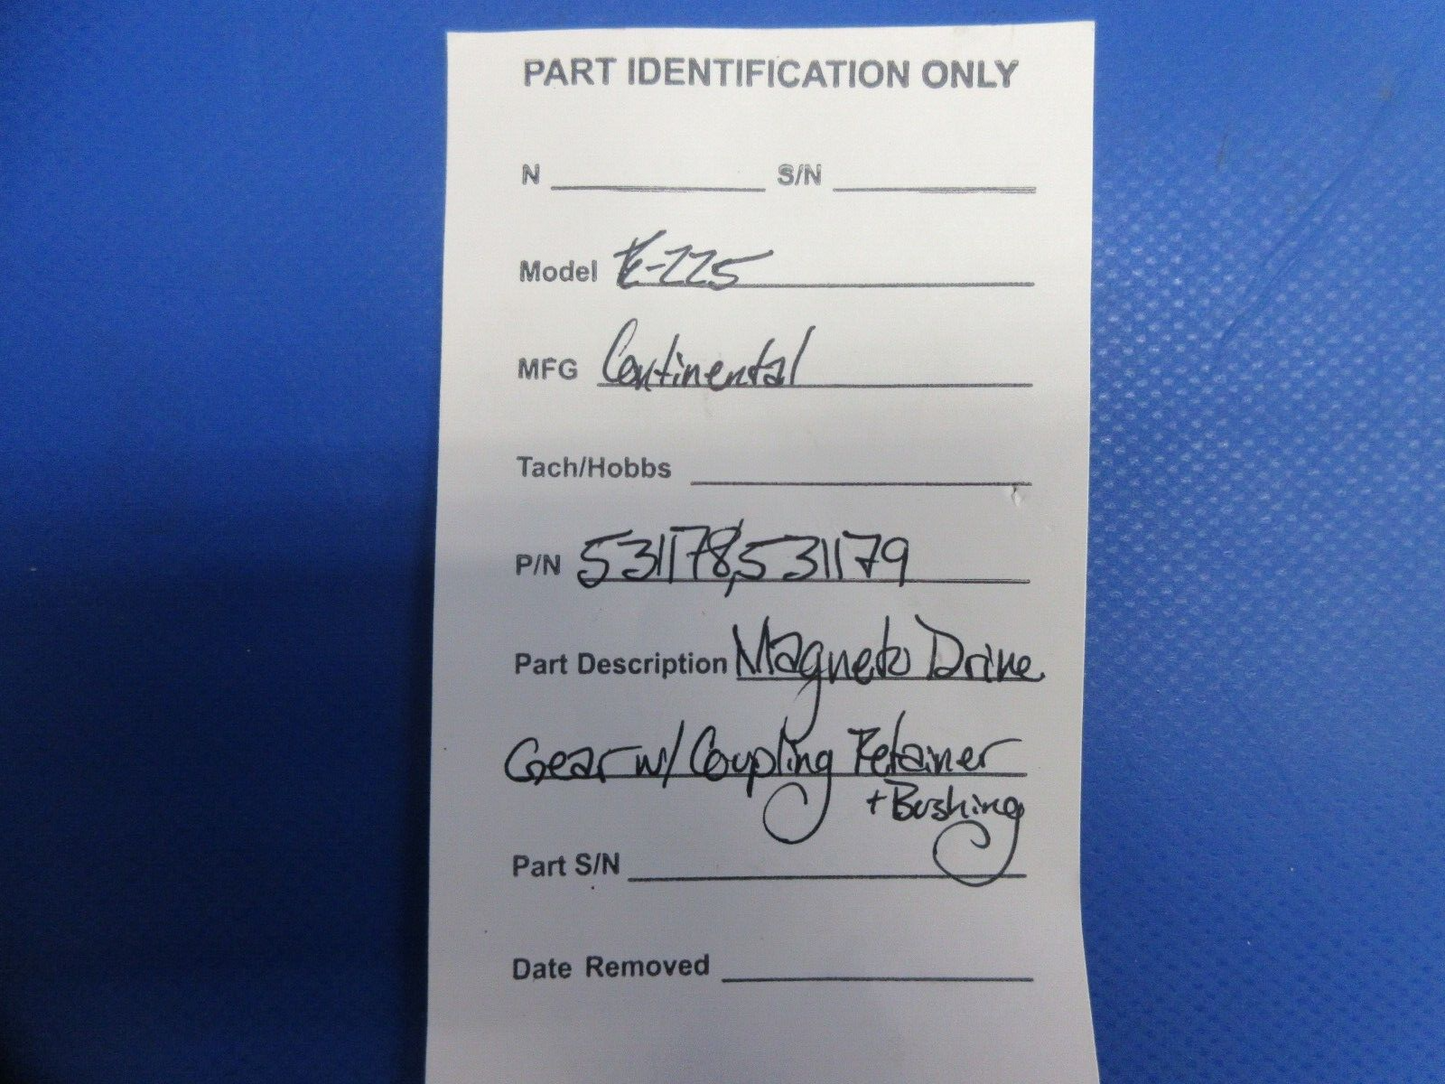 PART IDENTIFICATION ONLY
N S/N
Model E-225
MFG Continental
Tach/Hobbs
P/N 531178,531179
Part Description Magneto Drive
Gear w/ Coupling Retainer
+ Bushing
Part S/N
Date Removed